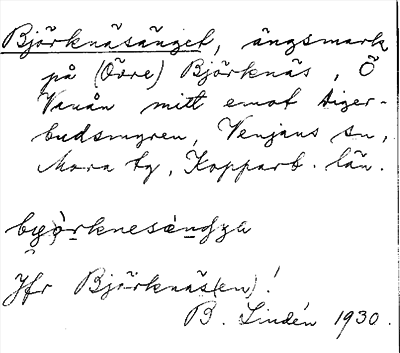 Björknäsänget, ängsmark
på (Övre) Björknäs, Ö
Vanån mitt emot Aiger-
budsmyren, Venjans sn,
Mora tg, Kopparb. län.
Jfr Björknäs(en)!
B. Lindén 1930.